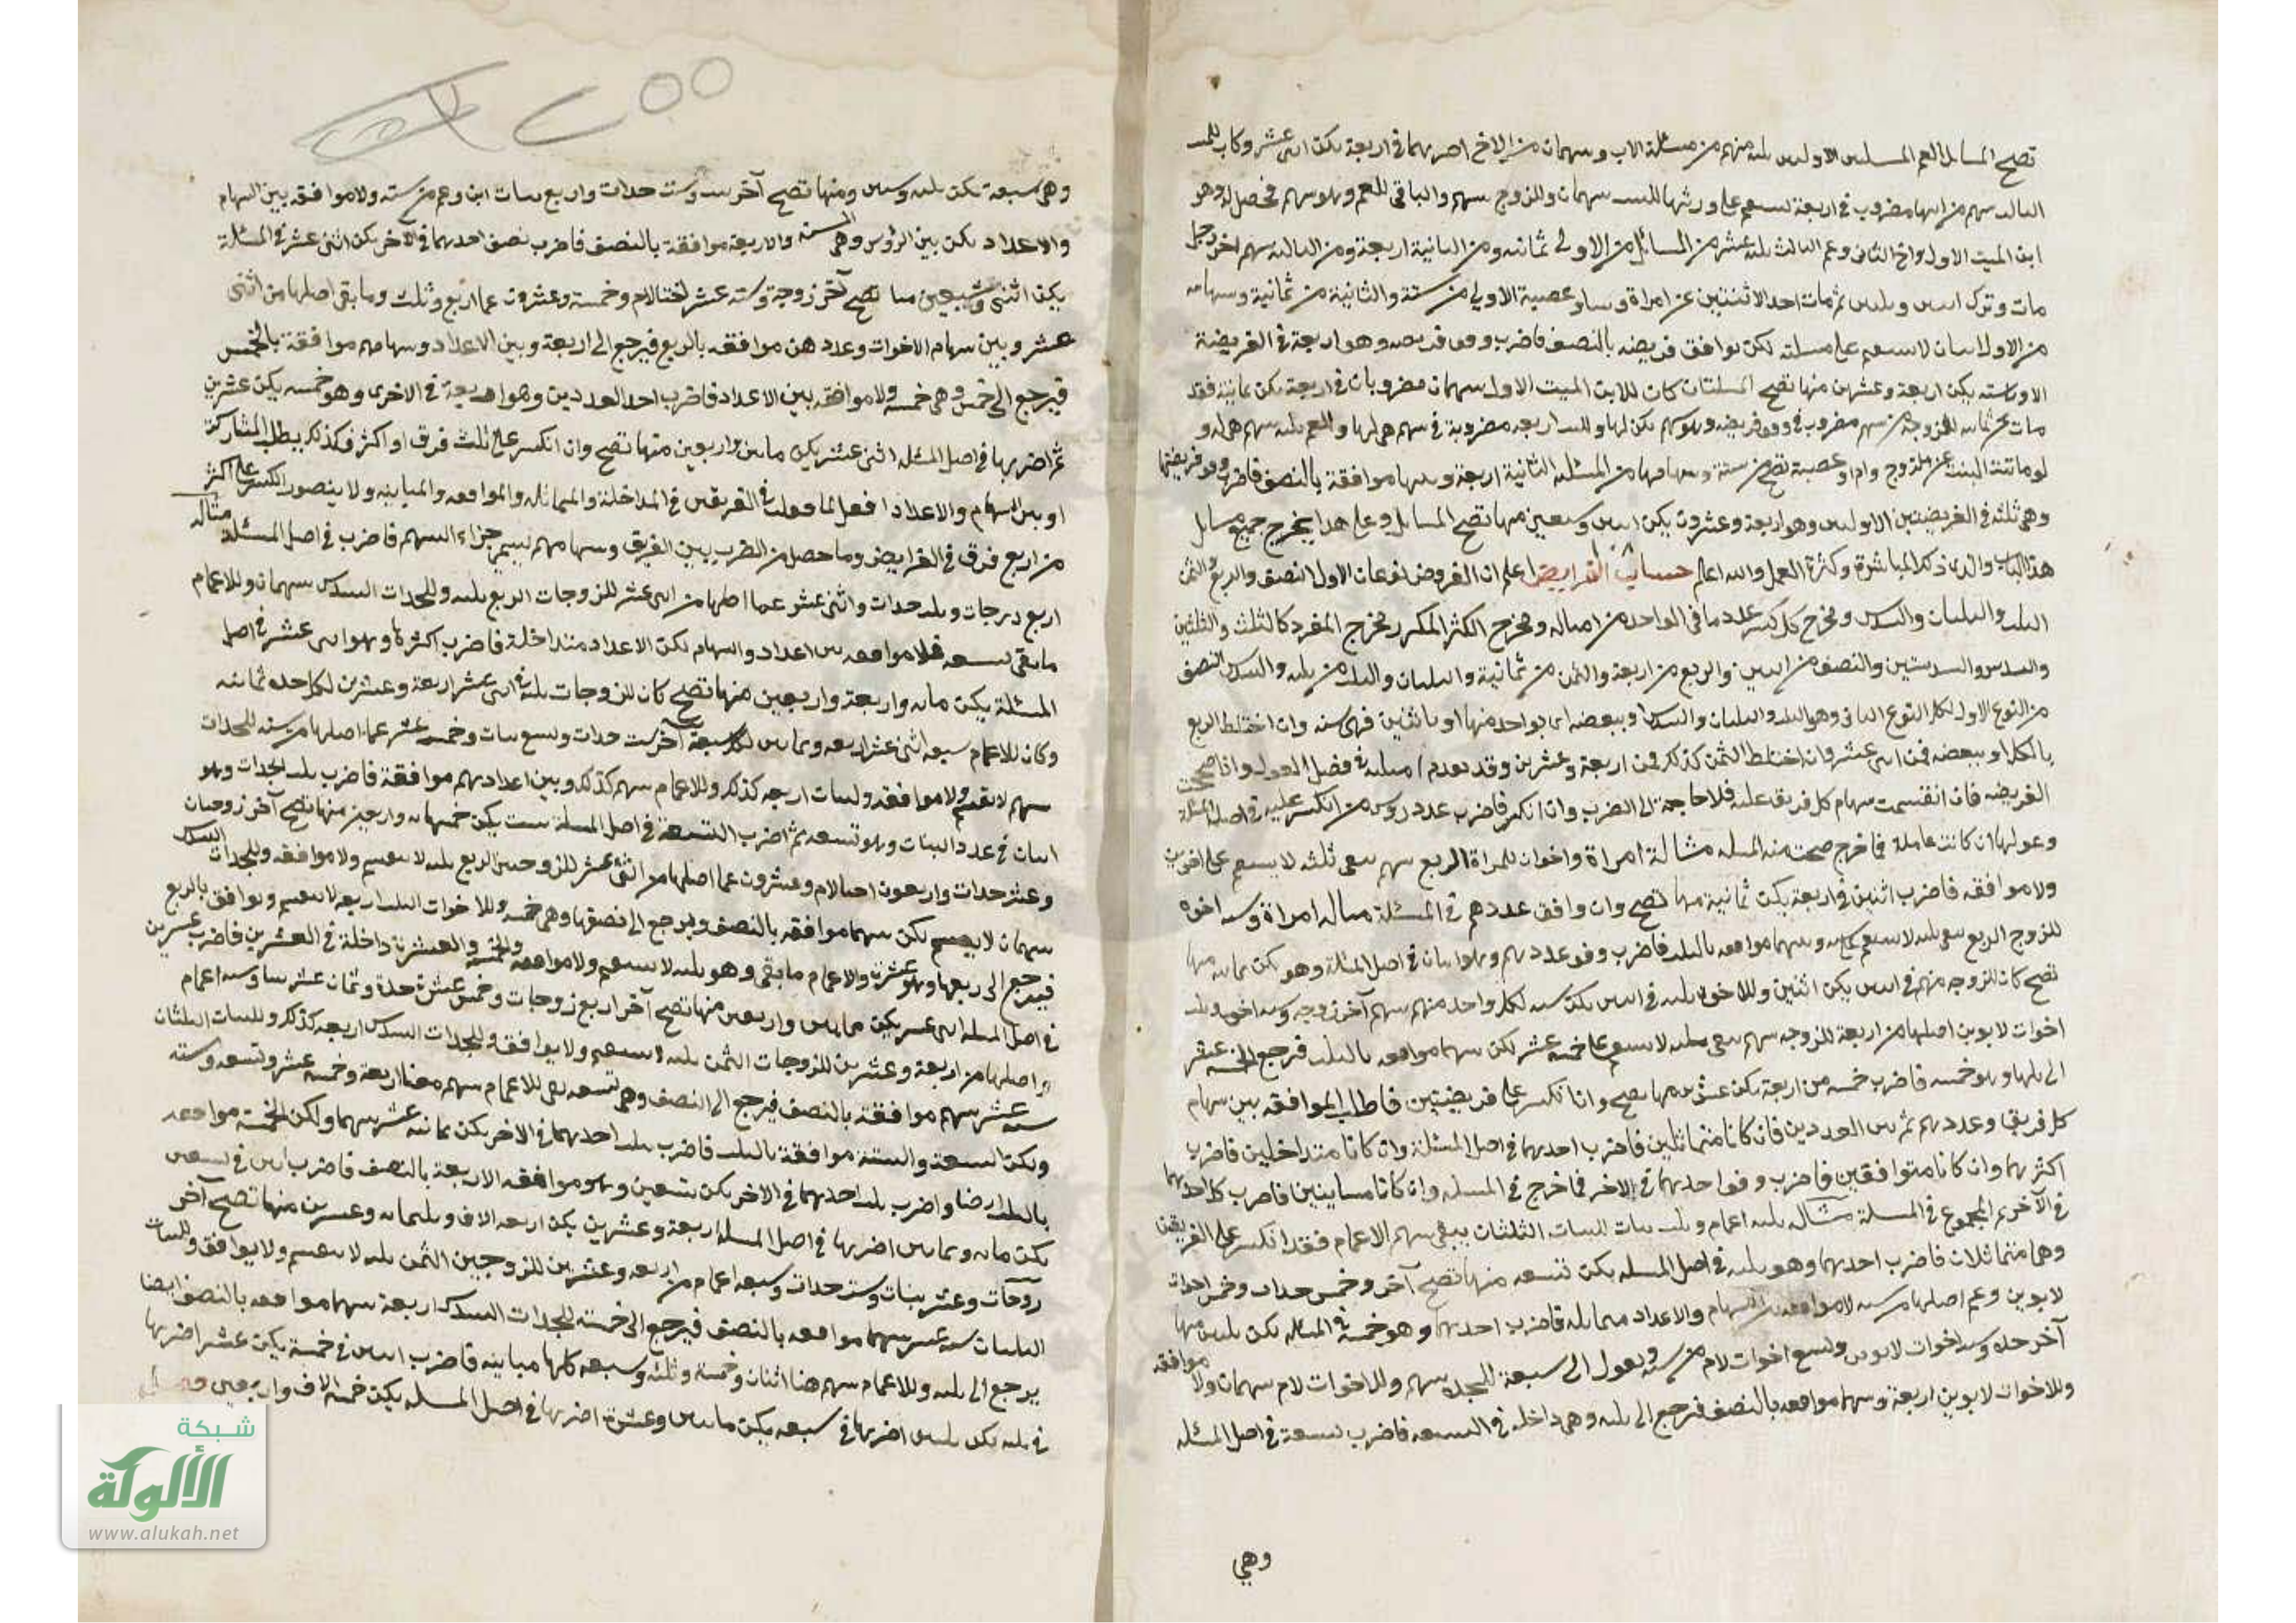 تصح المسايل للعم المسلتين الاولتين ثلثه منهم من مسئلة الاب وسهمان من الاخ اضربهما في اربعة يكن اثنى عشر وكان للبنت
الثالث سهم من ابيها مضروب في اربعة تنقسم على ورثتها للبنت سهمان وللزوج سهم والباقي للعم وهو سهم فحصل له وهو
ابن الميت الاول واخ الثاني وعم الثالث ثلثه عشر من المسائل من الاولى ثمانيه ومن الثانية اربعة ومن الثالثه سهم اخر رجل
مات وترك ابنين وبنتين ثم مات احد الاثنتين عن امراة وساير عصبة الاولى من ستة والثانية من ثمانية وسهامه
من الاولى اثنان لا تنقسم على مسلته لكن توافق فريضته بالنصف فاضرب وفق فريضته وهو اربعة في الفريضة
الاولى سته يكن اربعة وعشرين منها تصح المسلتان كان للابن الميت الاول سهمان مضروبان في اربعة يكن ثمانية فقد
مات عن ثمانيه للزوجة من سهم مضروب في وفق فريضته
لو ماتت البنت عن زوج وام وعصبة تصح من ستة وسهامها من المسئله الثانية اربعة وبينهما موافقة بالنصف فاضرب وفق فريضتها
وهي ثلثه في الفريضتين الاولتين وهو اربعة وعشرون يكن اثنين وسبعين منها تصح المسايل وعلى هذا يخرج جميع مسايل
هذا الباب والذي ذكر المباشرة وكثرة العمل والله اعلم حساب الفرايض اعلم ان الفروض نوعان الاول النصف والربع والثمن
الثلث والثلثان والسدس ومخرج كل كسر عدد ما في الواحد من امثاله ومخرج الكسر المكرر مخرج المفرد كالثلث والثلثين
والسدس والسدستين والنصف من اثنين والربع من اربعة والثمن من ثمانية والثلثان والثلث من ثلثه والسدس النصف
من النوع الاول لكل النوع الثاني وهو الثلث والثلثان والسدس او ببعضه اي بواحد منها او باثنين فهي سته وان اختلط الربع
بالكل او ببعضه فمن اثنى عشر وان اختلط الثمن كذلك فمن اربعة وعشرين وقد تقدم امثلته في فصل العول واذا صححت
الفريضه فان انقسمت سهام كل فريق عليه فلا حاجة الى الضرب وان انكسر فاضرب عدد رؤس من انكسر عليه في اصل المسئلة
وعولها ان كانت عاملة فما خرج صحت منه المسله مثالة امراة واخوان للمراة الربع سهم بقى ثلثه لا ينقسم على اخوين
ولا موافقه فاضرب اثنين في اربعة يكن ثمانية منها تصح وان وافق عددهم في المسئلة مثاله امراة وسته اخوه
للزوج الربع بقى ثلثه لا ينقسم على سته وبينهما موافقه بالثلث فاضرب وفق عددهم وهو اثنان في اصل المسئلة وهو يكن ثمانيه منها
تصح كان للزوجه منهم في اثنين يكن اثنين وللاخوه ثلثه في اثنين يكن سته لكل واحد منهم سهم آخر زوجه وسته اخوه وثلث
اخوات لابوين اصلها من اربعة للزوجه سهم بقى ثلثه لا ينقسم على خمسه عشر لكن بينهما موافقه بالثلث فرجع الخمسه عشر
الى ثلثها وهو خمسه فاضرب خمسه من اربعة يكن عشرين منها تصح وان انكسر على فريضتين فاطلب الموافقه بين سهام
كل فريق وعددهم ثم بين العددين فان كانا متماثلين فاضرب احدهما في اصل المسئلة وان كانا متداخلين فاضرب
اكثرهما وان كانا متوافقين فاضرب وفق احدهما في الاخر فما خرج في المسله وان كانا متباينين فاضرب كل احدهما
في الآخر ثم المجموع في المسلة مثاله ثلثه اعمام وثلث بنات للبنات الثلثان يبقى سهم الاعمام فقد انكسر على الفريقين
وهما متماثلان فاضرب احدهما وهو ثلثه في اصل المسله يكن تسعه منها تصح آخر وخمس جدات وخمس اخوات
لابوين وعم اصلها من سته لا موافقه بين السهام والاعداد متماثله فاضرب احدهما وهو خمسة في المسئله يكن ثلثين منها
آخر جده وست اخوات لابوين وتسع اخوات لام من سته وتعول الى سبعة للجده سهم وللاخوات لام سهمان ولا موافقه
وللاخوات لابوين اربعة وبينهما موافقه بالنصف فترجع الى ثلثه وهي داخله في التسعه فاضرب تسعة في اصل المسئله
وهي
وهي سبعة تكن ثلثه وستين ومنها تصح آخر بنت وست جدات واربع بنات ابن وعم من سته ولا موافقه بين السهام
والاعداد لكن بين الرؤس وهي الستة والاربعة موافقة بالنصف فاضرب نصف احدهما في الآخر يكن اثنى عشر في المسئلة
يكن اثنى وسبعين منها تصح آخر زوجة وسته عشر اختا لام وخمسة وعشرون عما اربع وثلث وما بقى اصلها من اثنى
عشر وبين سهام الاخوات وعددهن موافقه بالربع فيرجع الى اربعة وبين الاعداد وسهامهم موافقة بالخمس
فيرجع الى خمس وهي خمسه ولا موافقه بين الاعداد فاضرب احد العددين وهو اربعة في الاخرى وهو خمسه يكن عشرين
ثم اضربها في اصل المسئله اثنى عشر يكن مائتين واربعين منها تصح وان انكسر على ثلث فرق او اكثر فكذلك يطلب المشاركة
او بين السهام والاعداد افعل كما فعلت في الفريقين في المداخلة والمماثله والموافقه والمباينه ولا يتصور الكسر على اكثر
من اربع فرق في الفرايض وما حصل من الضرب بين الفريق وسهامهم يسمى جزاء السهم فاضرب في اصل المسئلة مثاله
اربع زوجات وثلث جدات واثنى عشر عما اصلها من اثنى عشر للزوجات الربع ثلثه وللجدات السدس سهمان وللاعمام
ما بقى سبعه فلا موافقه بين اعداد والسهام لكن الاعداد متداخلة فاضرب اكثرها وهو اثنى عشر في اصل
المسئلة يكن مائه واربعة واربعين منها تصح كان للزوجات ثلثه في اثنى عشر
وكان للاعمام سبعه اثنى عشر اربعه وثمانين لكل سبعة آخر ست جدات وتسع بنات وخمسه عشر عما اصلها من سته للجدات
سهم لا تقسم ولا موافقه ولبنات اربعه كذلك وللاعمام سهم كذلك وبين اعدادهم موافقة فاضرب ثلث الجدات وهو
اثنان في عدد البنات وهو تسعه ثم اضرب
وعشر جدات واربعون اختا لام وعشرون عما اصلها من اثنى عشر للزوجتين الربع ثلثه لا تنقسم ولا موافقه وللجدات السدس
سهمان لا ينقسم لكن بينهما موافقه بالنصف ويرجع الى نصفها وهي خمسه وللاخوات الثلث اربعه لا تنقسم وتوافق بالربع
فيرجع الى ربعها وهو عشرة والاعمام ما بقى وهو ثلثه لا ينقسم ولا موافقه والخمسه والعشرة داخلة في العشرين فاضرب عشرين
في اصل المسله اثنى عشر يكن مائتين واربعين منها تصح آخر اربع زوجات وخمس عشرة جدة وثمان عشر بنتا وسته اعمام
اصلها من اربعة وعشرين للزوجات الثمن ثلثه لا تنقسم ولا يوافق وللجدات السدس اربعه كذلك وللبنات الثلثان
سته عشر سهم موافقة بالنصف فيرجع الى النصف وهي تسعه بقى للاعمام سهم معنا اربعة وخمسه عشر وتسعه وسته
ولكن التسعة والستة موافقة بالثلث فاضرب ثلث احدهما في الاخر يكن ثمانيه عشر سهما ولكن الخمسة موافقه
بالثلث ايضا واضرب ثلث احدهما في الاخر يكن تسعين وهو موافقه الاربعة بالنصف فاضرب اثنين في تسعين
يكن مائه وثمانين اضربها في اصل المسله اربعة وعشرين يكن اربعه الاف وثلثمائه وعشرين منها تصح آخر
زوجات وعشر بنات وست جدات وسبعه اعمام من اربعه وعشرين للزوجتين الثمن ثلثه لا تنقسم ولا يوافق وللبنات
الثلثان سته عشر سهما موافقه بالنصف فيرجع الى خمسة للجدات السدس اربعة بينهما موافقه بالنصف ايضا
يرجع الى ثلثه وللاعمام سهم هنا اثنان وخمسة وثلثه وسبعه كلها مباينه فاضرب اثنين في خمسة يكن عشر اضربها
في ثلثه يكن ثلثين اضربها في سبعه يكن مائتين وعشرة اضربها في اصل المسله يكن خمسه الاف واربعين
شبكة
الألوكة
www.alukah.net